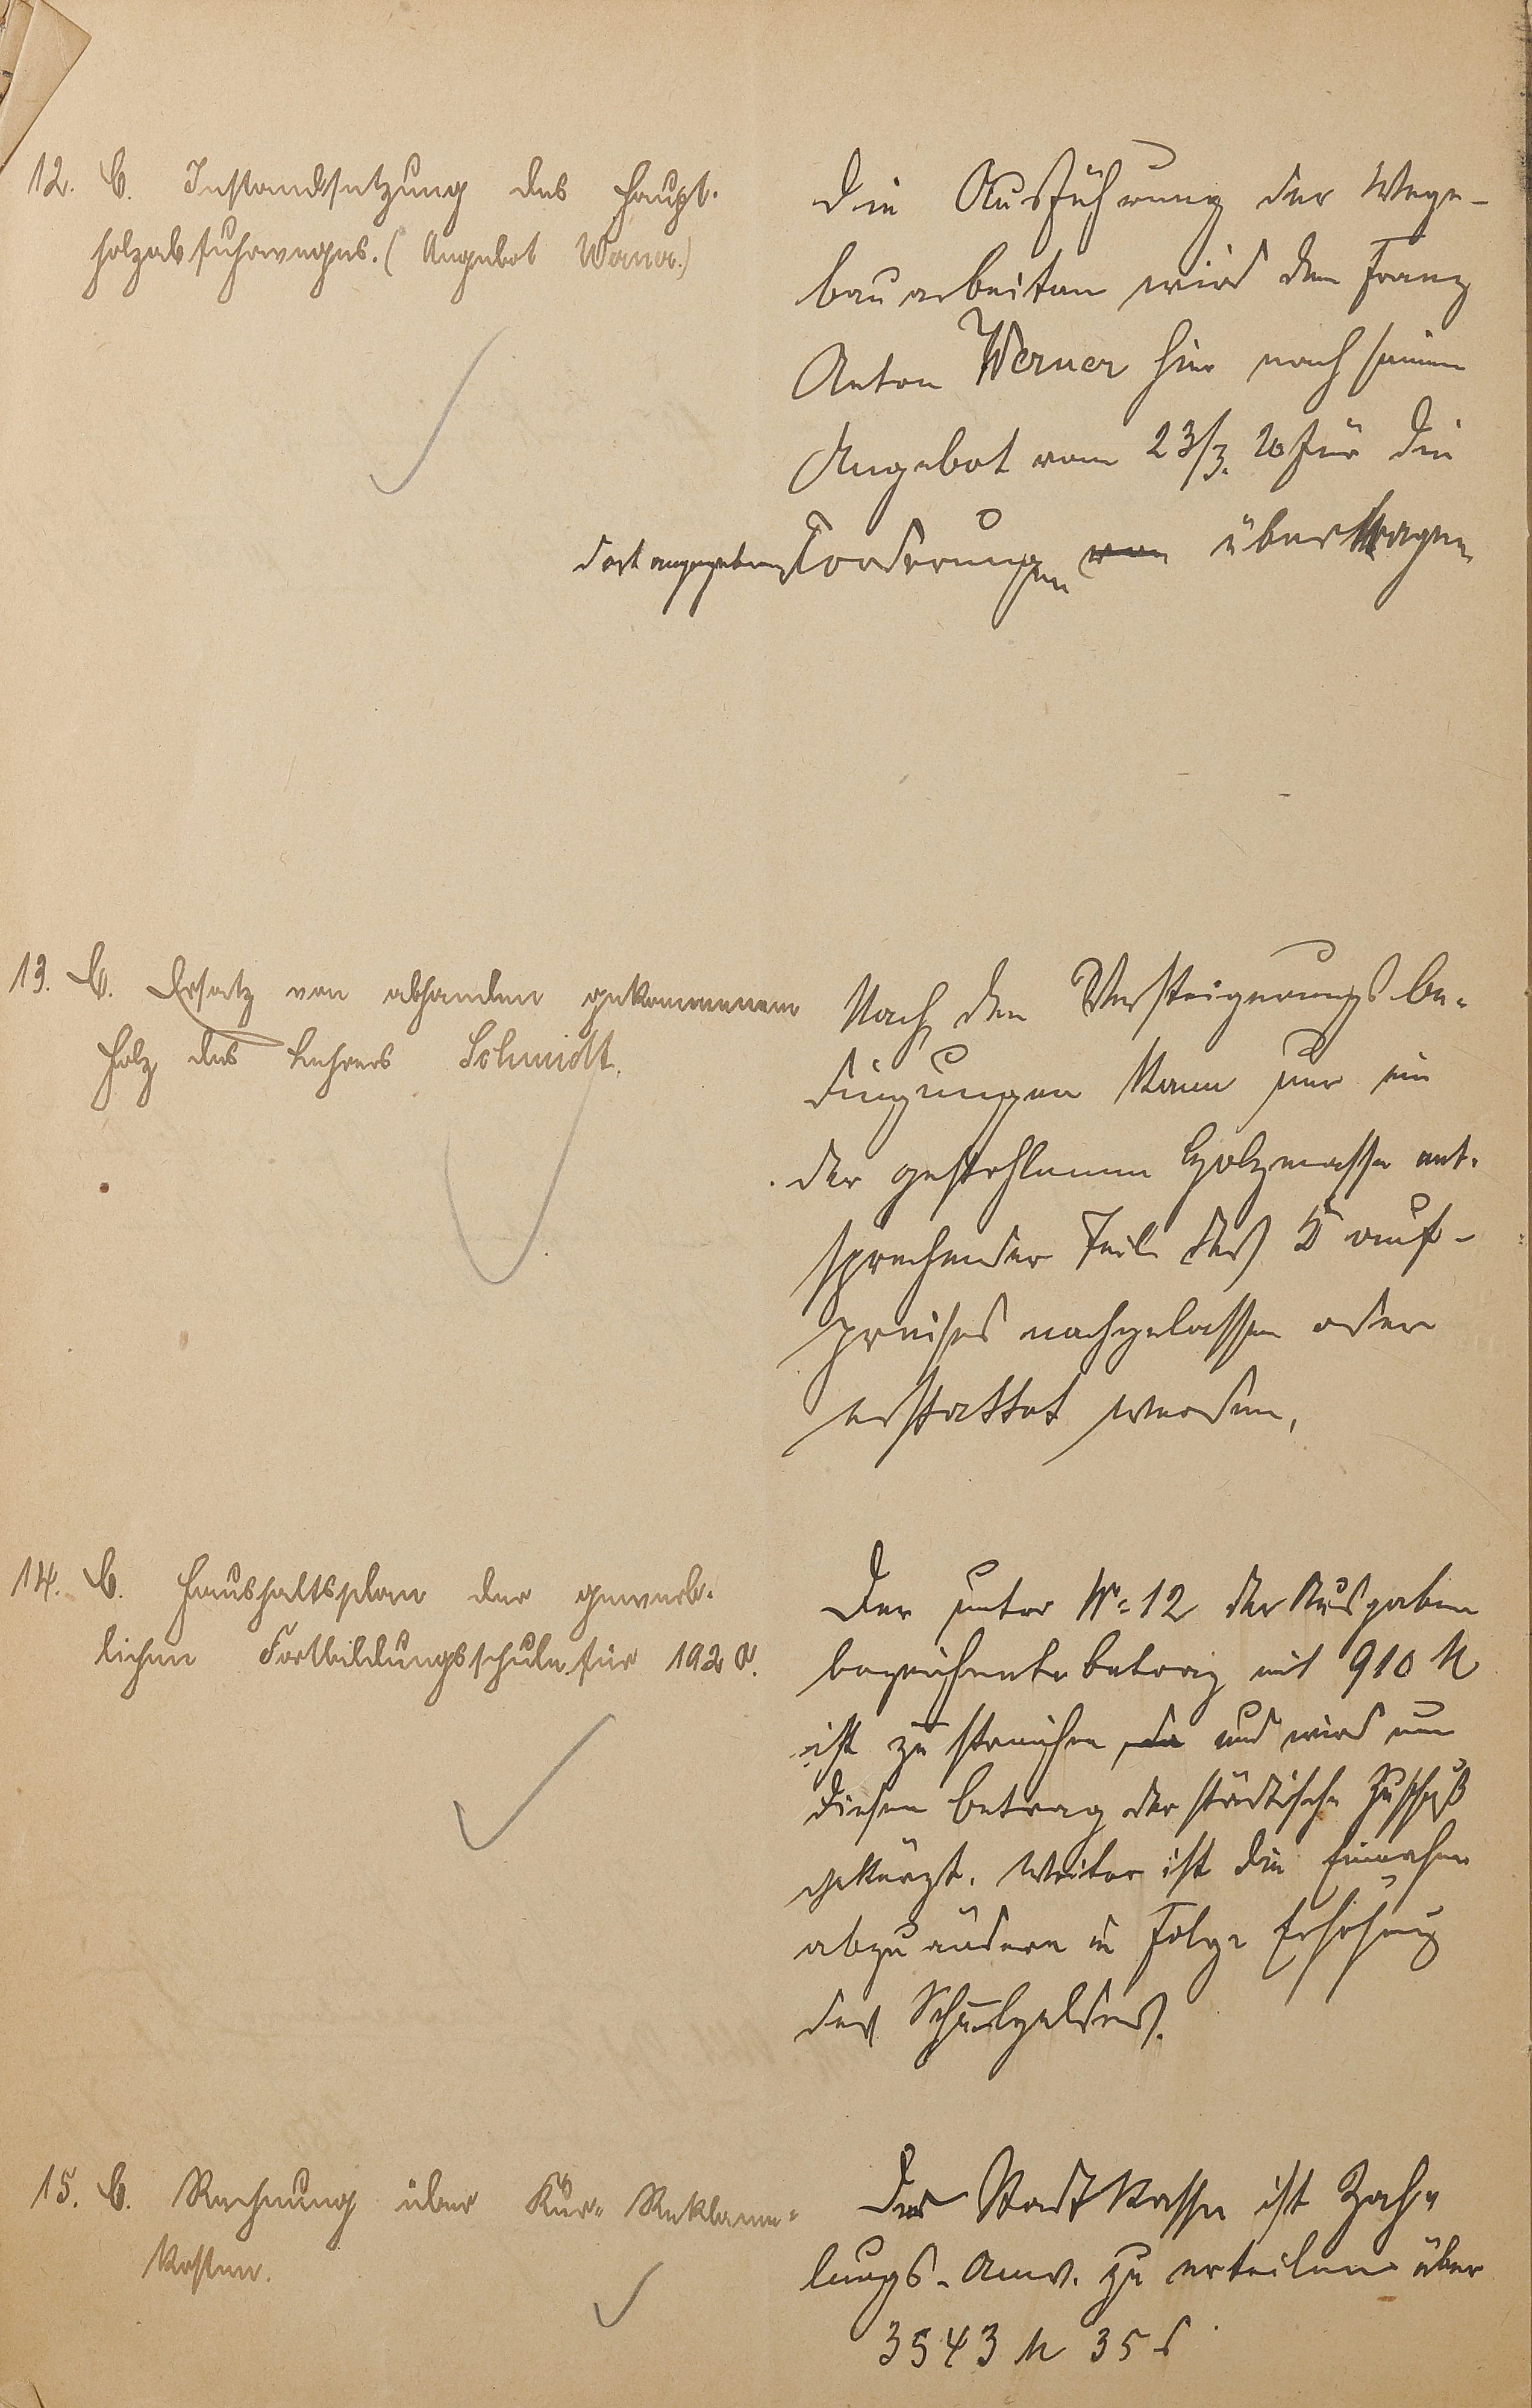 12. B. Instandsetzung des Haupt-
holzabfuhrweges. (Angebot Werner.)
Die Ausführung der Wege-
bauarbeiten wird dem Franz
Anton Werner hier nach seinem
Angebot vom 23/3. 20 für die
dort angegebenen Forderungen von übertragen
13. B. Ersatz von abhanden gekommenem
Holz des Lehrers Schmidt.
Nach den Versteigerungsbe-
dingungen kann nur ein
der gestohlenen Holzmasse ent-
sprechender Teil des Kauf-
preises nachgelassen oder
erstattet werden.
14. B. Haushaltsplan der gewerb-
lichen Fortbildungsschule für 1920.
Der unter Nr. 12 der Ausgaben
bezeichnete Betrag mit 910 M
ist zu streichen da und wird um
diesen Betrag der städtische Zuschuß
gekürzt. Weiter ist die Einnahme
abzuändern in Folge Erhöhung
des Schulgeldes.
15. B. Rechnung über Kur- Reklame-
kosten.
Der Stadtkasse ist Zah-
lungs-Anw. zu erteilen über
3543 M 35 ₰